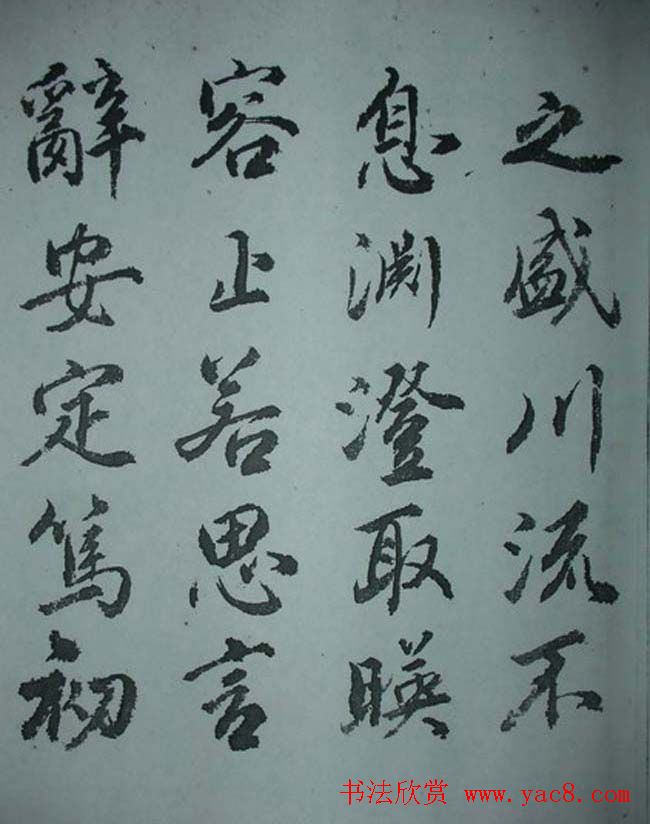 之盛川流不
息淵澄取暎
容止若思言
辭安定篤初
书法欣赏 www.yac8.com